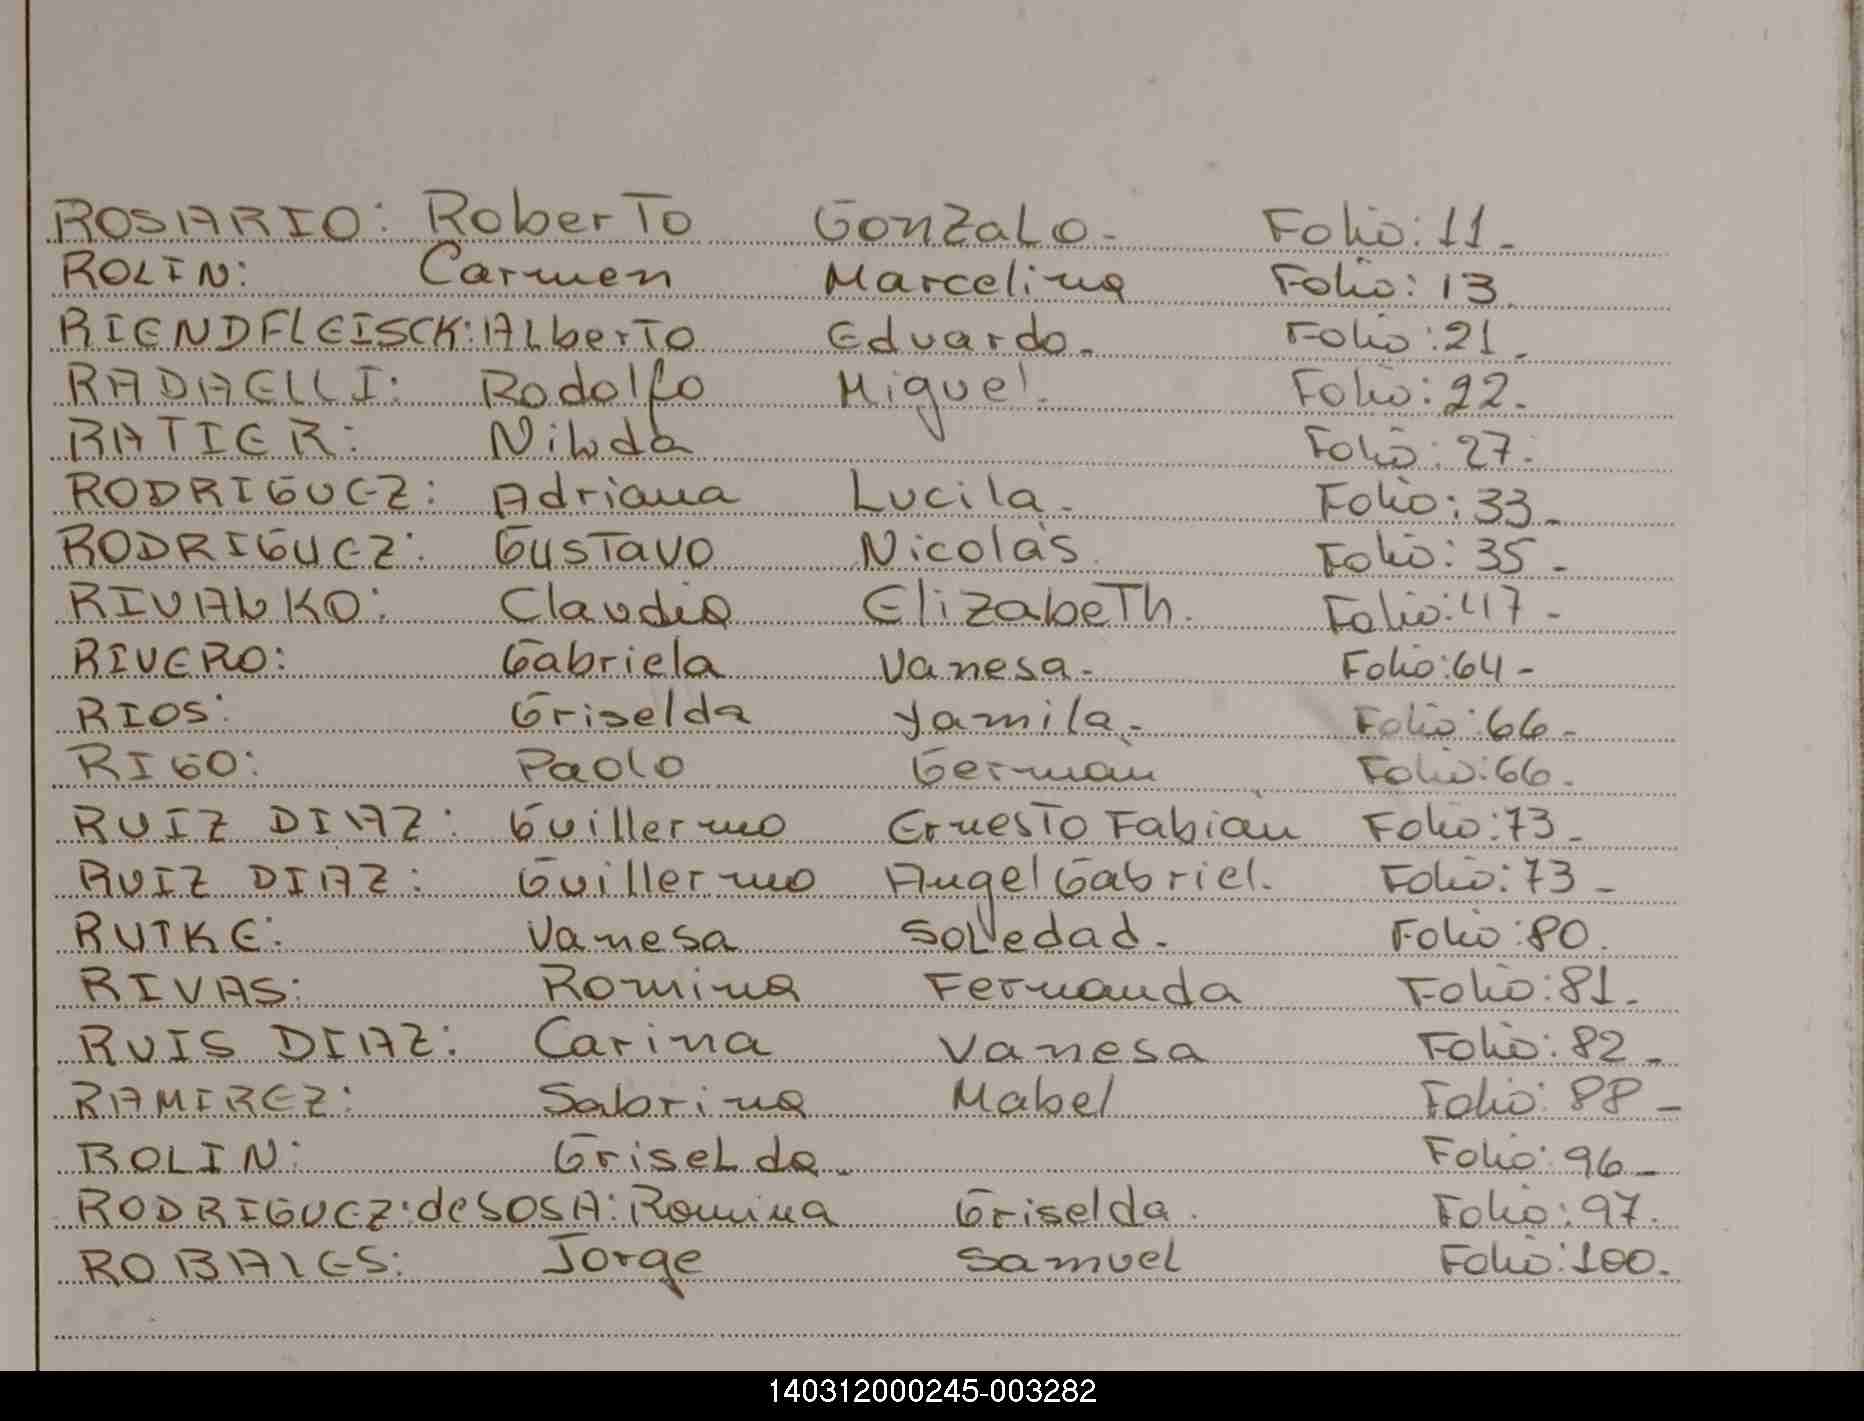 ROSARIO: Roberto Gonzalo. Folio: 11.-
ROLIN: Carmen Marcelina Folio: 13.
RIENDFLEISCK: Alberto Eduardo. Folio: 21.
RADAELLI: Rodolfo Miguel. Folio: 22.
RATIER: Nilda Folio: 27.
RODRIGUEZ: Adriana Lucila. Folio: 33.-
RODRIGUEZ: Gustavo Nicolás. Folio: 35.-
RIVALKO: Claudia Elizabeth. Folio: 47.-
RIVERO: Gabriela Vanesa.- Folio: 64.-
RIOS: Griselda Yamila.- Folio: 66.-
RIGO: Paolo Germán Folio: 66.
RUIZ DIAZ: Guillermo Ernesto Fabian Folio: 73.-
RUIZ DIAZ: Guillermo Angel Gabriel. Folio: 73.-
RUTKE: Vanesa Soledad. Folio: 80.
RIVAS: Romina Fernanda Folio: 81.
RUIS DIAZ: Carina Vanesa Folio: 82.-
RAMIREZ: Sabrina Mabel Folio: 88.-
ROLIN: Griselda. Folio: 96.-
RODRIGUEZ: de SOSA: Romina Griselda. Folio: 97.
ROBALES: Jorge Samuel Folio: 100.
140312000245-003282